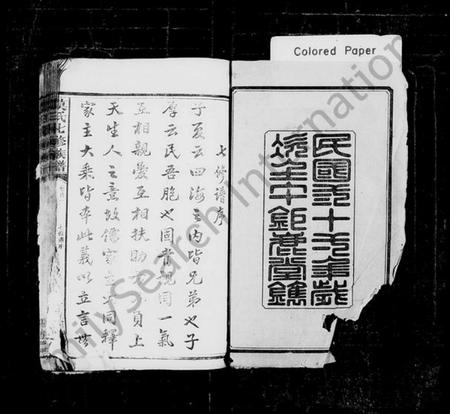 Colored Paper
民國三十六年歲
次
鉅鹿堂鐫
七修譜序
子夏云四海之內皆兄弟也子
厚云民吾胞也同胞同一氣
互相親愛互相扶助 上
天生人之意故儒家 同釋
家主大乘皆本此義以立言世
氏七修族譜
FamilySearch International